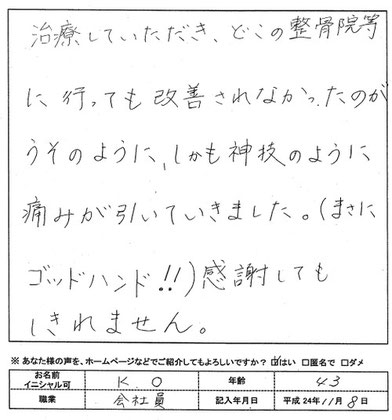 治療していただき、どこの整骨院等
に行っても改善されなかったのが
うそのように、しかも神技のように
痛みが引いていきました。(まさに
ゴッドハンド!!)感謝しても
しきれません。
※あなた様の声を、ホームページなどでご紹介してもよろしいですか? ☑はい □匿名で □ダメ
お名前 イニシャル可 K O 年齢 43
職業 会社員 記入年月日 平成24年11月8日